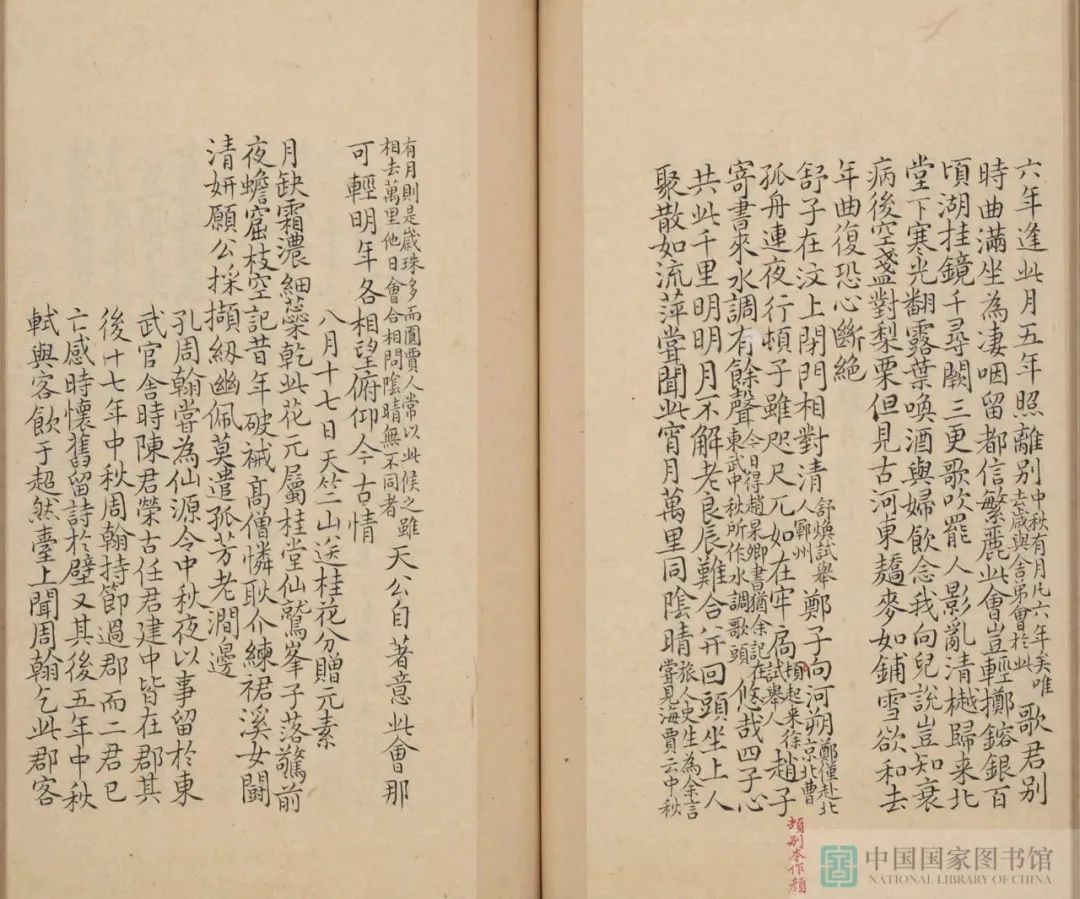 六年逢此月五年照離別中秋有月凡六年矣唯去歲與舍弟會於此歌君別
時曲滿坐為凄咽留都信繁麗此會豈輕擲鎔銀百
頃湖挂鏡千尋闕三更歌吹罷人影亂清樾歸来北
堂下寒光翻露葉喚酒與婦飲念我向兒說豈知衰
病後空盞對梨栗但見古河東麥如鋪雪欲和去
年曲復恐心斷絶
舒子在汶上閉門相對清舒煥試舉人鄆州鄭子向河朔鄭僅赴北京北曹
孤舟連夜行頓子雖咫尺兀如在牢扃頓起来徐試舉人趙子
寄書來水調有餘聲今日得趙杲卿書猶余記在東武中秋所作水調歌頭悠哉四子心
共此千里明明月不解老良辰難合并回頭坐上人
聚散如流萍嘗聞此宵月萬里同陰晴旅人史生為余言嘗見海賈云中秋
頓别本作顔
有月則是歲珠多而圓賈人常以此候之雖相去萬里他日會合相問陰晴無不同者天公自著意此會那
可輕明年各相望俯仰今古情
八月十七日天竺山送桂花分贈元素
月缺霜濃細蘂乾此花元屬桂堂仙鷲峯子落驚前
夜蟾窟枝空記昔年破裓高僧憐耿介練裙溪女鬬
清妍願公採擷紉幽佩莫遣孤芳老澗邊
孔周翰嘗為仙源令中秋夜以事留於東
武官舍時陳君榮古任君建中皆在郡其
後十七年中秋周翰持節過郡而二君已
亡感時懷舊留詩於壁又其後五年中秋
軾與客飲于超然臺上聞周翰乞此郡客
中国国家图书馆
NATIONAL LIBRARY OF CHINA